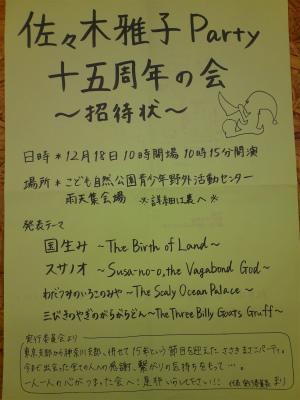 佐々木雅子 Party
十五周年の会
～招待状～
日時＊12月18日10時開場 10時15分開演
場所＊こども自然公園青少年野外活動センター
雨天集会場 ※詳細は裏へ※
発表テーマ
国生み ～The Birth of Land～
スサノオ ～Susa-no-o, the Vagabond God～
わだつみのいろこのみや ～The Scaly Ocean Palace～
三びきのやぎのがらがらどん ～The Three Billy Goats Gruff～
実行委員会より
東京支部から神奈川支部へ、併せて15年という節目を迎えた ささきまさこパーティ。
今まで出会った全ての人への感謝、繋がりの気持ちをもって…。
一人一人の心がつまった会へ！是非いらして下さい！！ 実行委員長 より